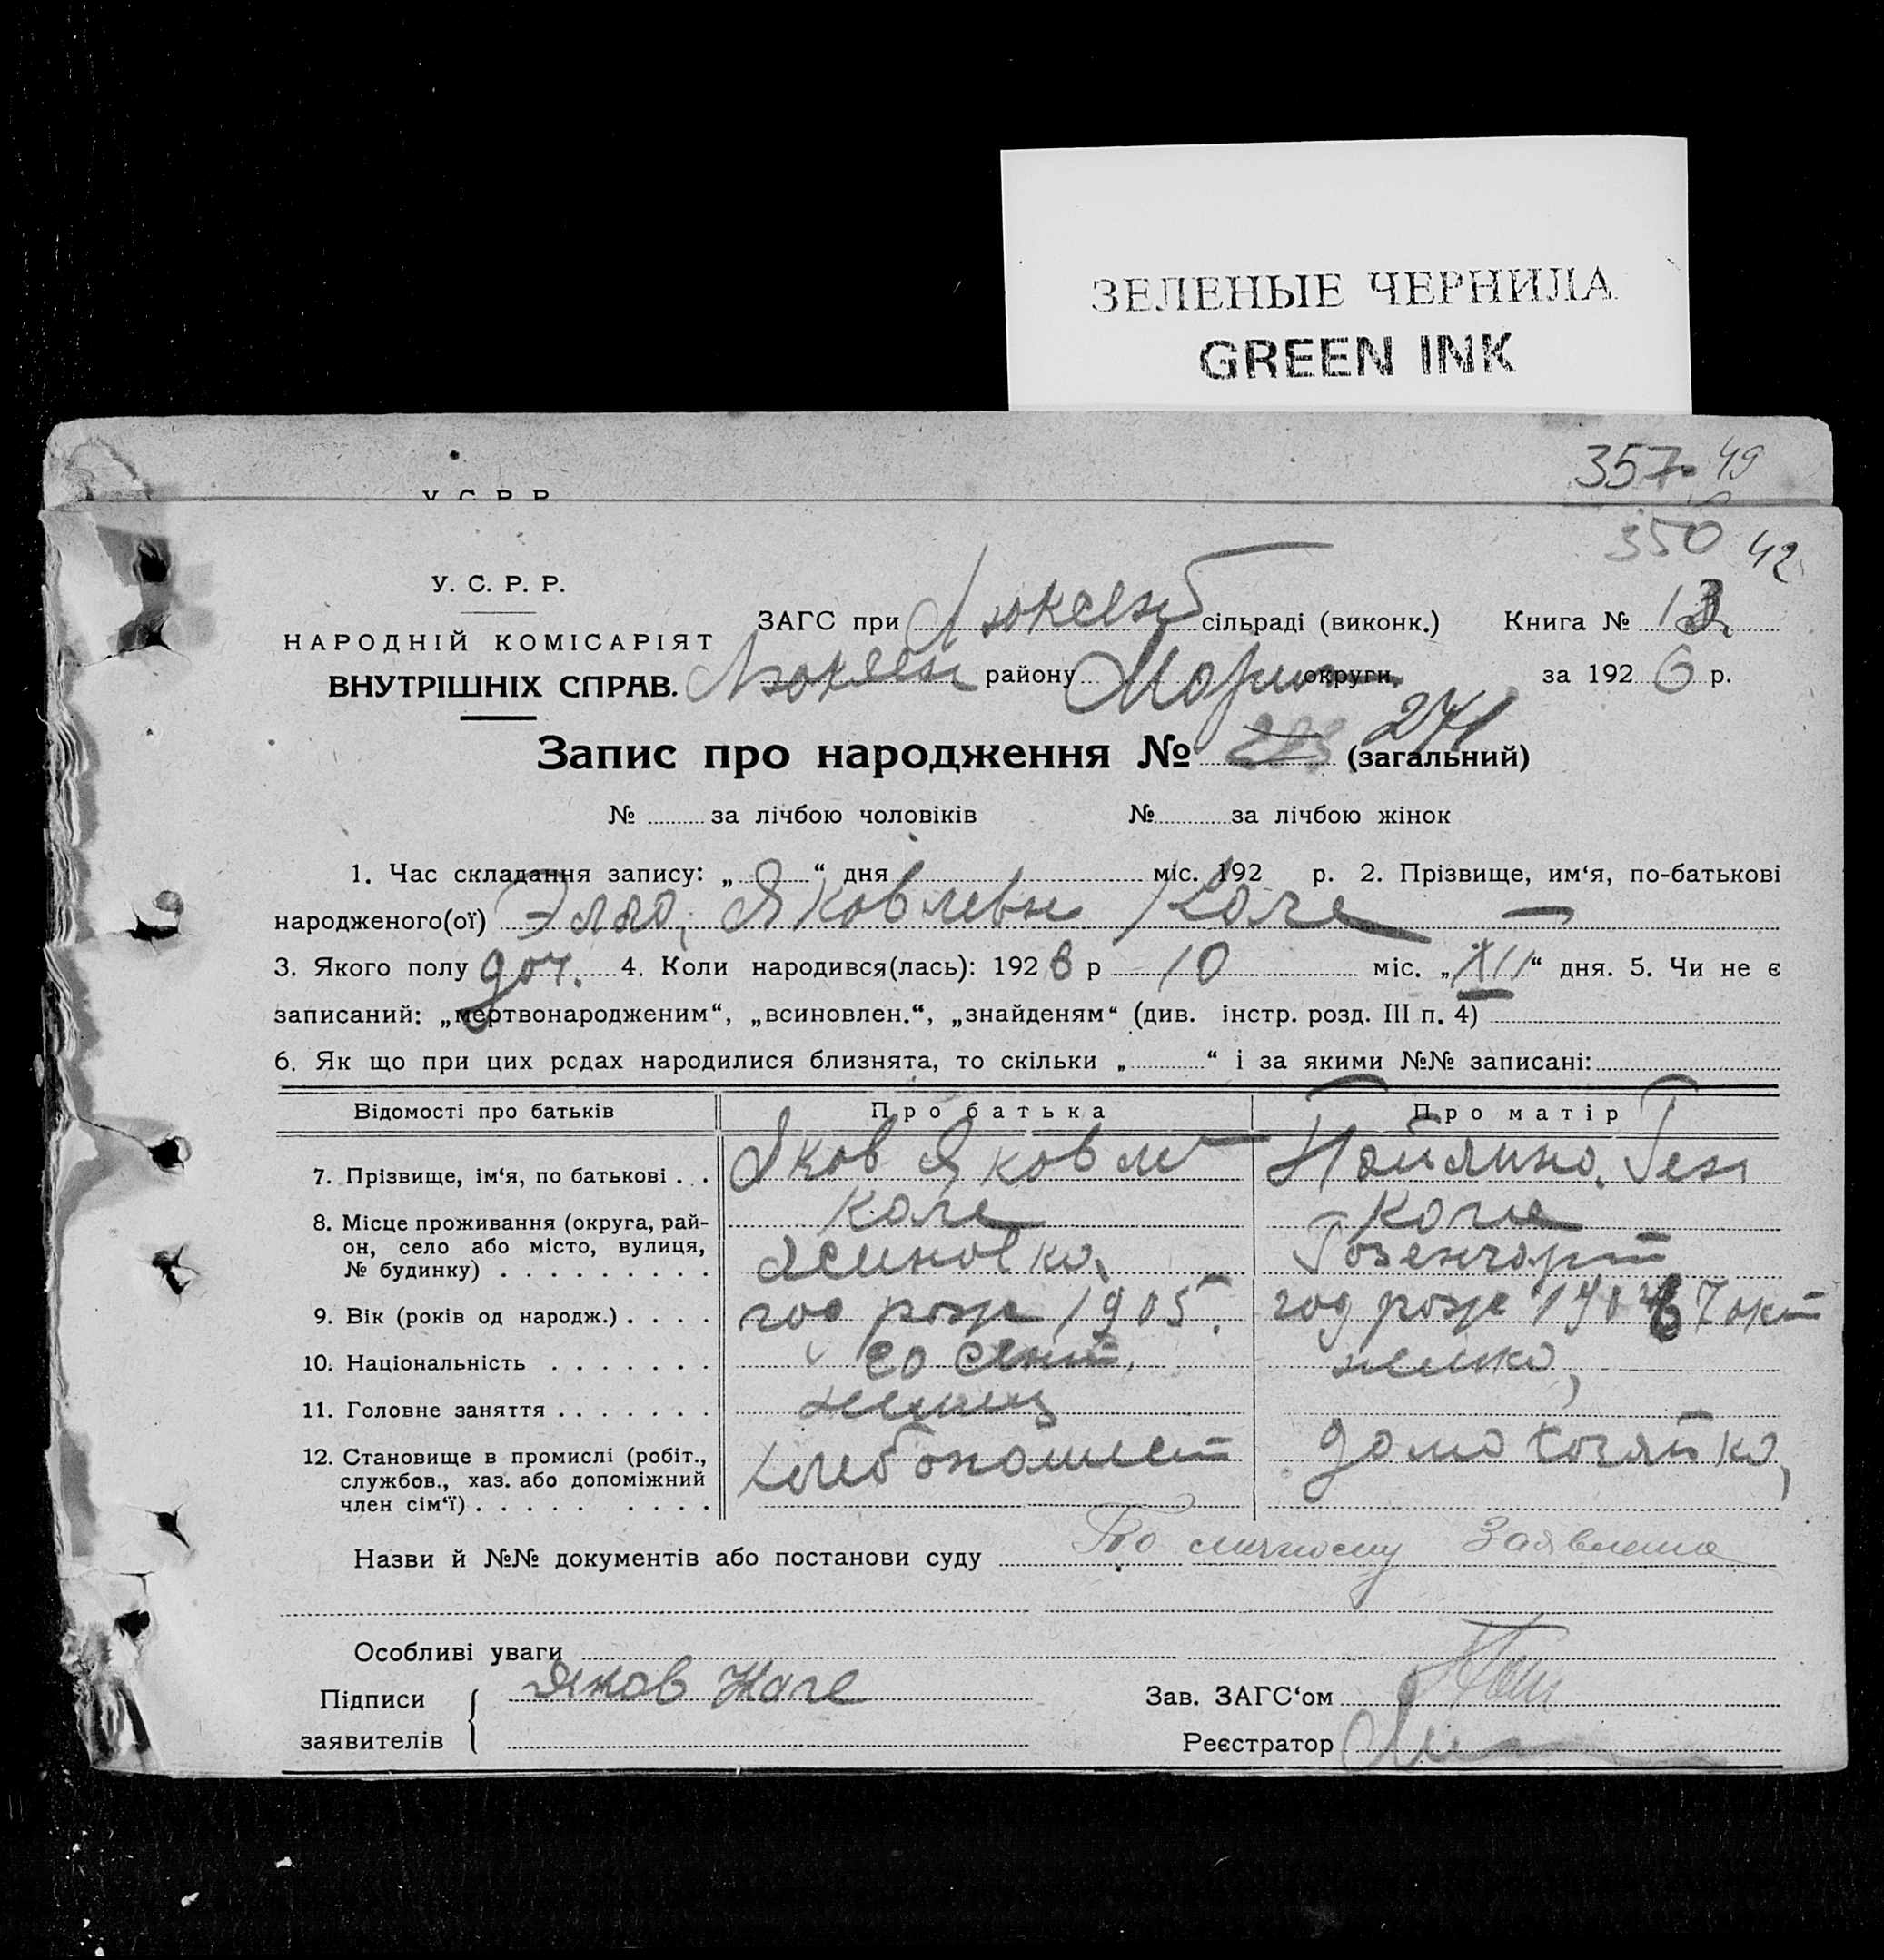 ЗЕЛЕНЫЕ ЧЕРНИЛА
GREEN INK
357 49
У. С. Р. Р.
350 42
У. С. Р. Р.
ЗАГС при Люксемб сільраді (виконк.) Книга № 13
НАРОДНІЙ КОМІСАРІЯТ
ВНУТРІШНІХ СПРАВ. Люксем району Мариуп округи. за 1926 р.
Запис про народження № 241 (загальний)
№ за лічбою чоловіків № за лічбою жінок
1. Час складання запису: „ “ дня міс. 192 р. 2. Прізвище, им‘я, по-батькові
народженого(ої) Элла, Яковлевн —
3. Якого полу доч. 4. Коли народився(лась): 1926 р 10 міс. „XII“ дня. 5. Чи не є
записаний: „мертвонародженим“, „всиновлен.“, „знайденям“ (див. інстр. розд. III п. 4)
6. Як що при цих родах народилися близнята, то скільки „ “ і за якими №№ записані:
Відомості про батьків Про батька Про матір
7. Прізвище, ім‘я, по батькові . . Яков Яковле
8. Місце проживання (округа, район, село або місто, вулиця,
№ будинку) . . . . . . . . . Ясиновка, Розенгарт
9. Вік (років од народж.) . . . . год рож 1905. год рож 7 окт
10. Національність . . . . . . . 20 сент, немка,
11. Головне заняття . . . . . . . немец
12. Становище в промислі (робіт., хлебопашест домохозяйка,
службов., хаз. або допоміжний
член сім‘ї) . . . . . . . . .
Назви й №№ документів або постанови суду По личному Заявлению
Особливі уваги
Підписи Яков Зав. ЗАГС‘ом
заявителів Реєстратор